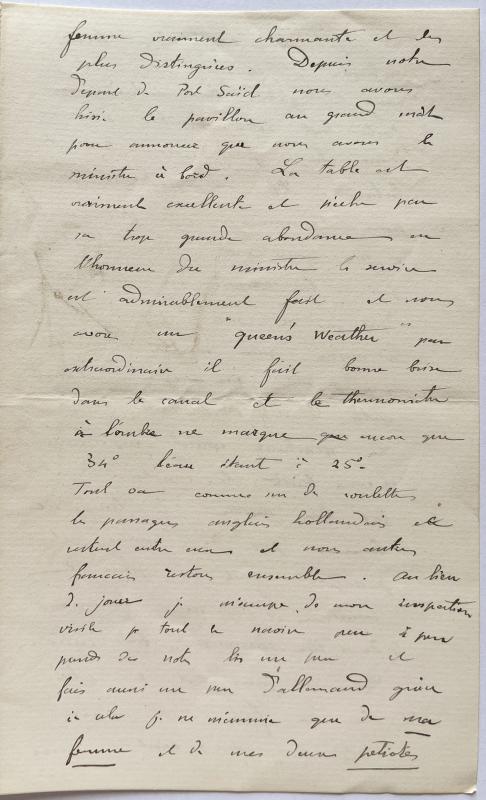 femme vraiment charmante et des
plus distinguées. Depuis notre
départ de Port Saïd nous avons
hissé le pavillon au grand mât
pour annoncer que nous avons le
ministre à bord. La table est
vraiment excellente et pèche par
sa trop grande abondance en
l'honneur du ministre le service
est admirablement fait et nous
avons un "queen's Weather" par
extraordinaire il fait bonne brise
dans le canal et le thermomètre
à l'ombre ne marque encore que
34° l'eau étant à 25°.
Tout va comme sur des roulettes
les passagers anglais hollandais
restent entre eux et nous autres
français restons ensemble. Au lieu
de jouer je m'occupe de mon inspection
visite tout le navire peu à peu
prends des notes lis un peu et
fais aussi un peu d'allemand grâce
à cela je ne m'ennuie que de ma
femme et de mes deux petiotes